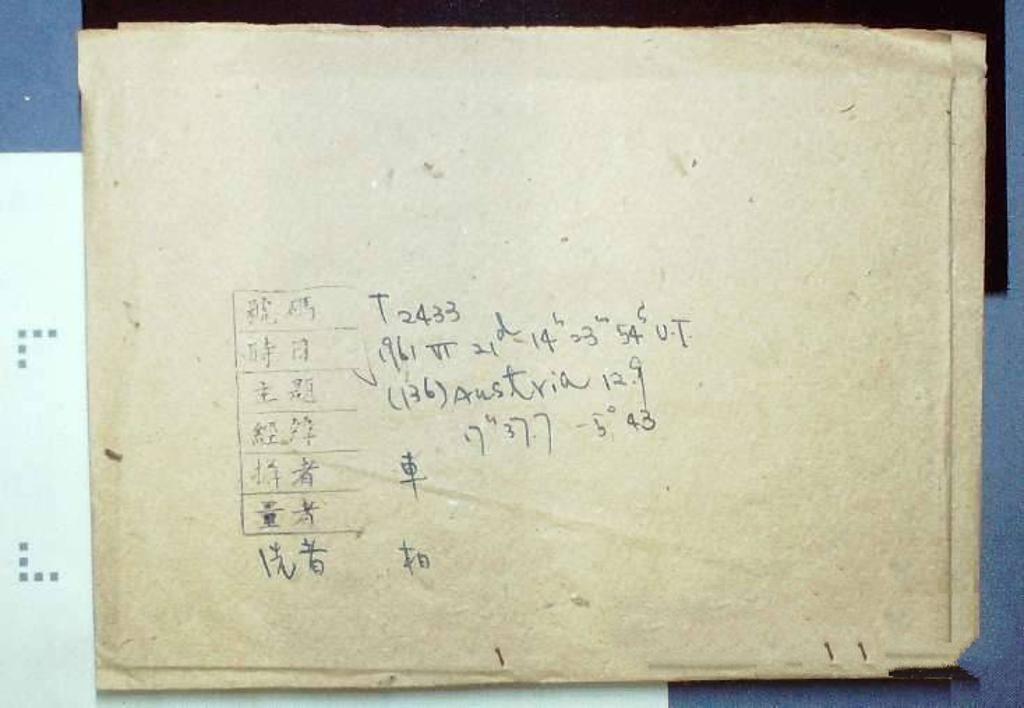 號碼 T2433
時日 1961 VI 21ᵈ-14ʰ23ᵐ54ˢ U.T.
主題 (136) Austria 12.9
經緯 17ʰ37.7 -5°43
拍者 車
量者
洗者 柏